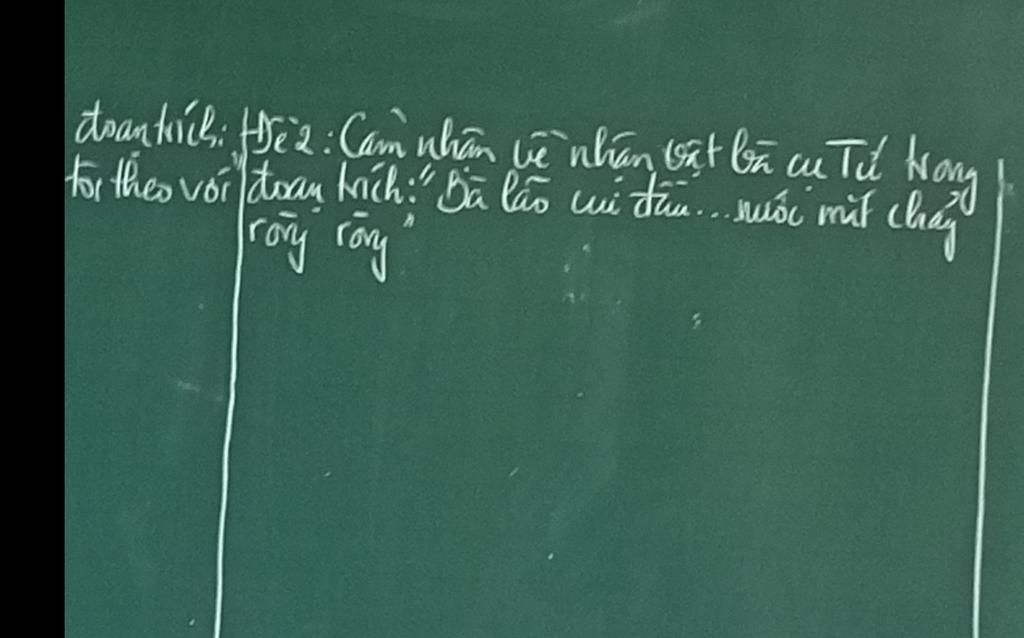 đoạn trích:
tôi theo với"
Đề 2: Cảm nhận về nhân vật bà cụ Tứ trong
đoạn trích: "Bà lão cúi đầu... nước mắt chảy
ròng ròng"